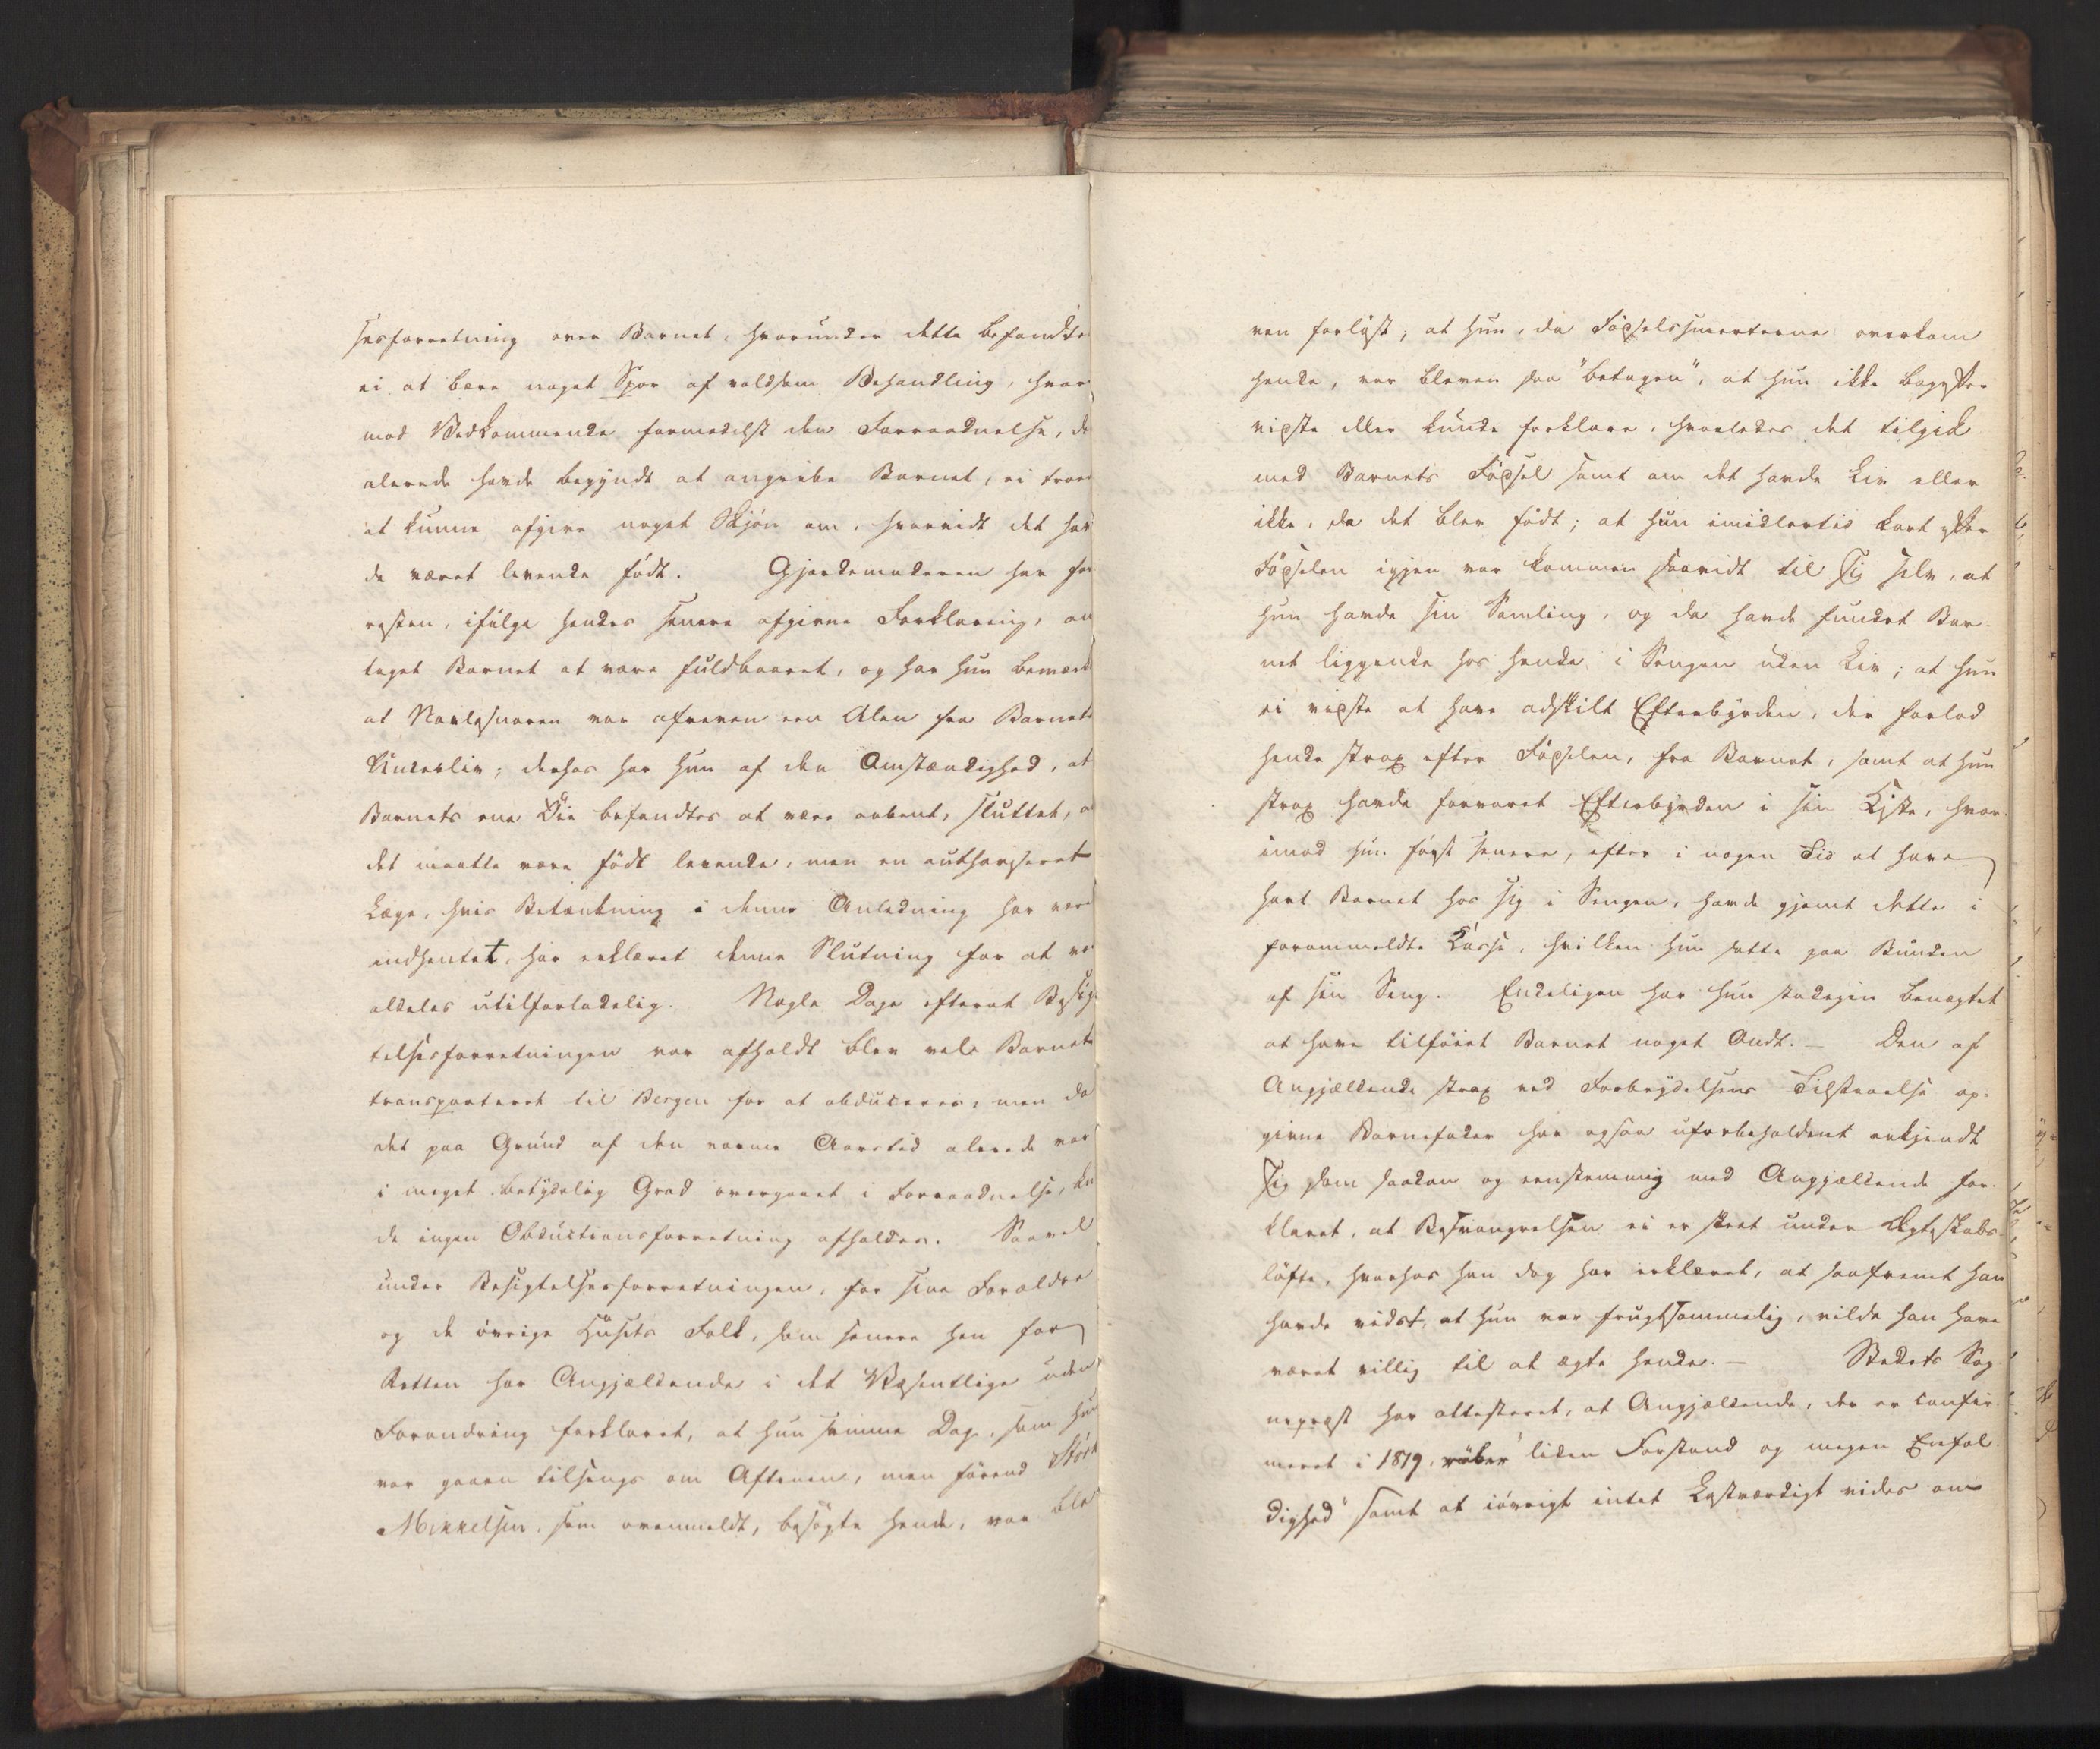 sesforretning over Barnet, hvorunder dette befandtes
ei at bære noget Spor af voldsom Behandling, hvor
mod Vedkommende formedelst den Forraadnelse, der
alerede havde begyndt at angribe Barnet, ei troede
at kunne afgive noget Skjøn om, hvorvidt det hav
de været levende født. Gjordemoderen har for
resten, ifølge hendes senere afgivne Forklaring, an
taget Barnet at være fuldbaaret, og har hun bemærket
at Navlesnoren var afreven een Alen fra Barnets
Underliv; derhos har hun af den Omstændighed, at
Barnets ene Øie befandtes at være aabent, sluttet, at
det maatte være født levende, men en authoriseret
Læge, hvis Betænkning i denne Anledning har været
indhentet, har erklæret denne Slutning for at være
aldeles utilforladelig. Nogle Dage efterat Besig
telsesforretningen var afholdt blev vel Barnet
transporteret til Bergen for at obduceres, men da
det paa Grund af den varme Aarstid alerede var
i meget betydelig Grad overgaaet i Forraadnelse, kun
de ingen Obductionsforretning afholdes. Saavel
under Besigtelsesforretningen, for sine Forældre
og de øvrige Husets Folk, som senere hen for
Retten har Angjældende i det Væsentlige uden
Forandring forklaret, at hun samme Dag, som hun
var gaaen tilsengs om Aftenen, men førend
Mikkelsen, som ovenmeldt, besøgte hende, var ble
ven forløst; at hun, da Fødselssmerterne overkom
hende, var bleven saa "betagen", at hun ikke bagefter
vidste eller kunde forklare, hvorledes det tilgik
med Barnets Fødsel samt om det havde Liv eller
ikke, da det blev født; at hun imidlertid kort efter
Fødselen igjen var kommen saavidt til sig selv, at
hun havde sin Samling, og da havde fundet Bar-
net liggende hos hende i Sengen uden Liv; at hun
ei vidste at have adskilt Efterbyrden, der forlod
hende strax efter Fødselen, fra Barnet, samt at hun
strax havde forvaret Efterbyrden i sin Kiste, hvor-
imod hun først senere, efter i nogen Tid at have
havt Barnet hos sig i Sengen, havde gjemt dette i
forommeldte hvilken hun satte paa Bunden
af sin Seng. Endeligen har hun stadigen benægtet
at have tilføiet Barnet noget Ondt. — Den af
Angjældende strax ved Forbrydelsens Tilstaaelse op-
givne Barnefader har ogsaa uforbeholdent erkjendt
sig som saadan og eenstemmig med Angjældende for-
klaret, at Besvangrelsen ei er skeet under Ægteskabs-
løfte, hvorhos han dog har erklæret, at saafremt han
havde vidst, at hun var frugtsommelig, vilde han have
været villig til at ægte hende. — Stedets Sog
nepræst har attesteret, at Angjældende, der er confir-
meret i 1819, røber "liden Forstand og megen Enfol-
dighed" samt at iøvrigt intet Lastværdigt vides om